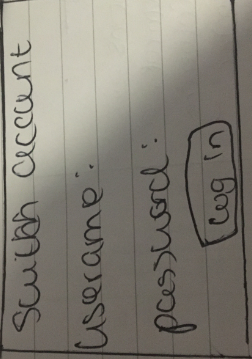 Scuitbh account
userame:
password:
Log in